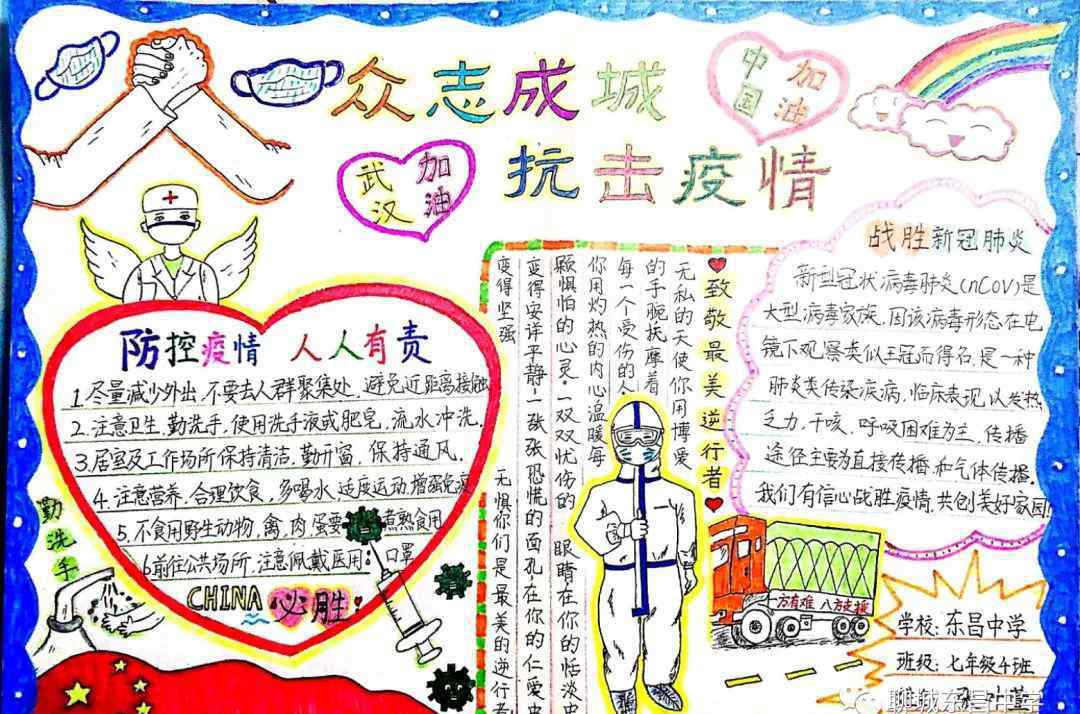 众志成城
抗击疫情
中国
加油
武汉
加油
防控疫情 人人有责
1.尽量减少外出,不要去人群聚集处,避免近距离接触
2.注意卫生,勤洗手,使用洗手液或肥皂,流水冲洗.
3.居室及工作场所保持清洁,勤开窗,保持通风.
4.注意营养,合理饮食,多喝水,适度运动,增强免疫
5.不食用野生动物,禽,肉,蛋要煮熟食用
6.前往公共场所,注意佩戴医用口罩
CHINA 必胜!
勤洗手
致敬最美逆行者
无私的天使你用博爱
的手腕抚摩着
每一个受伤的人
你用灼热的内心温暖每
颗惧怕的心灵。一双双忧伤的 眼睛在你的恬淡中
变得安详平静,一张张恐慌的面孔,在你的仁爱中
变得坚强 无惧你们是最美的逆行者
战胜新冠肺炎
新型冠状病毒肺炎(nCoV)是
大型病毒家族,因该病毒形态在电
镜下观察类似王冠而得名,是一种
肺炎类传染疾病,临床表现,以发热
乏力,干咳,呼吸困难为主,传播
途径主要为直接传播,和气体传播.
我们有信心战胜疫情,共创美好家园!
方有难 八方支援
学校: 东昌中学
班级: 七年级4班
聊城东昌中学